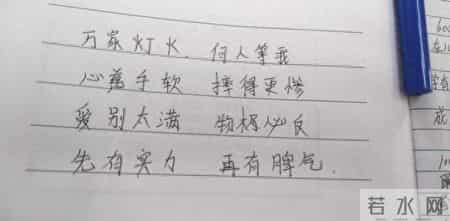 万家灯火、何人等我
心慈手软 摔得更惨
爱别太满 物极必反
先有实力 再有脾气.
600
若水网